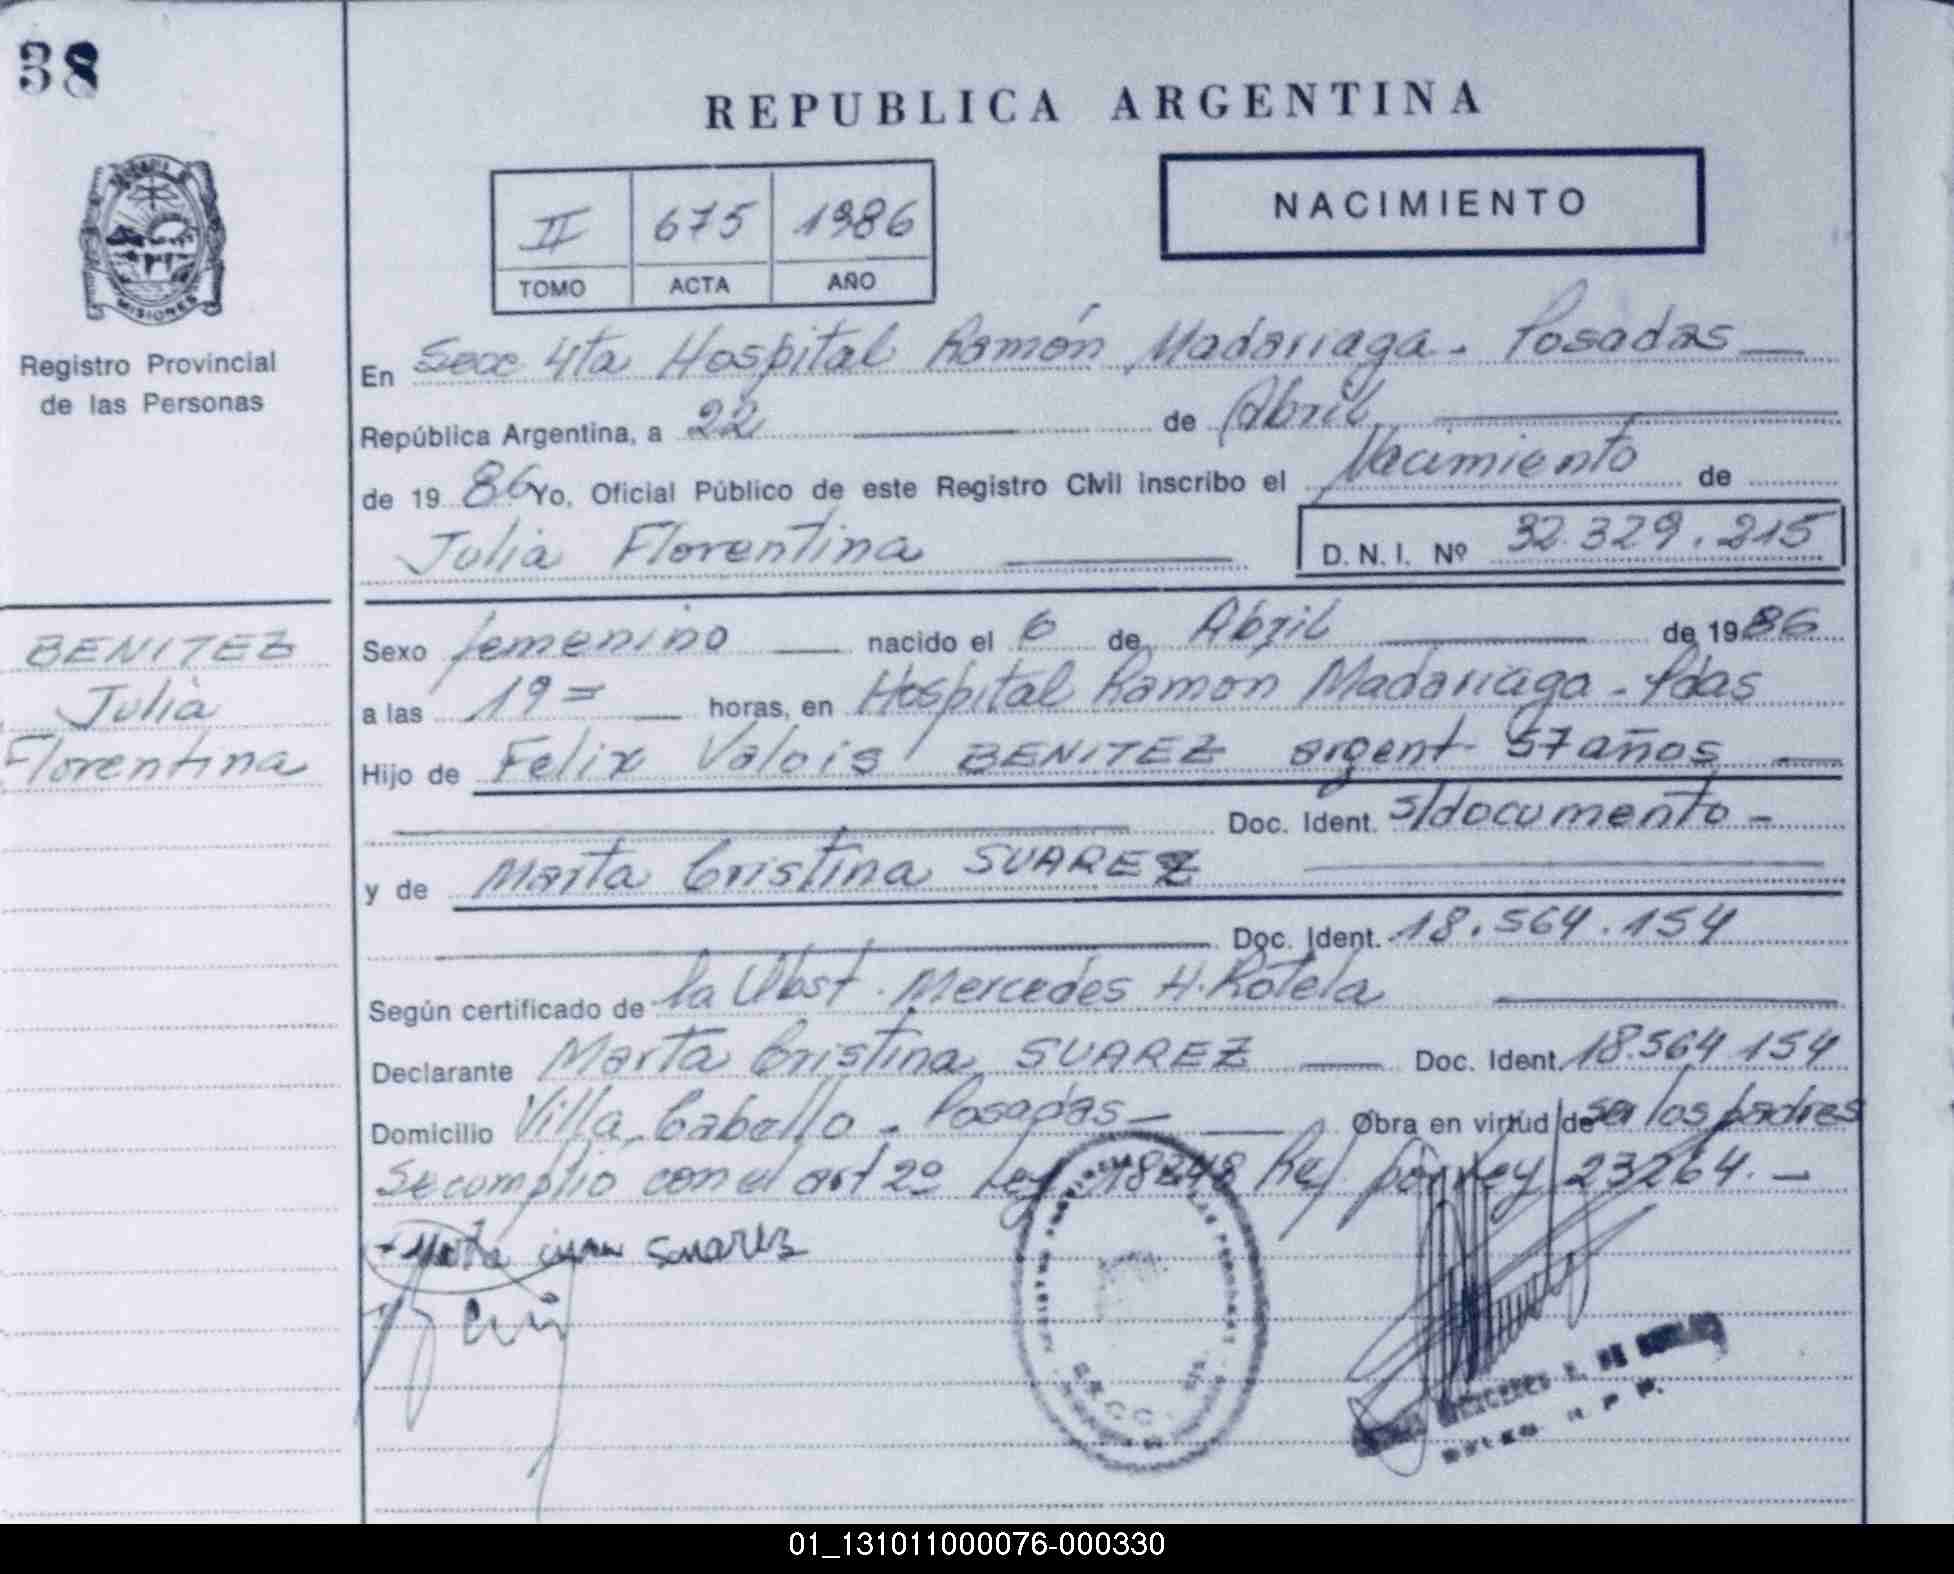 38
REPUBLICA ARGENTINA
NACIMIENTO
II 675 1986
TOMO ACTA AÑO
MISIONES
Registro Provincial
de las Personas
En Secc 4ta Hospital Ramón Madariaga - Posadas
República Argentina, a 22 de Abril
de 19 86 Yo, Oficial Público de este Registro Civil inscribo el Nacimiento de
Julia Florentina
D. N. I. Nº 32.329.215
BENITEZ
Julia
Florentina
Sexo femenino nacido el 6 de Abril de 1986
a las 19 = horas, en Hospital Ramon Madariaga - Pdas
Hijo de Felix Valois BENITEZ argent 57 años
Doc. Ident. s/documento -
y de Marta Cristina SUAREZ
Doc. Ident. 18.564.154
Según certificado de la Obst. Mercedes H. Rotela
Declarante Marta Cristina SUAREZ Doc. Ident. 18.564.154
Domicilio Villa Cabello - Posadas - Obra en virtud de ser los padres
Se cumplió con el art 2º Ley 18248 Ref por Ley 23264. -
suarez
01_131011000076-000330